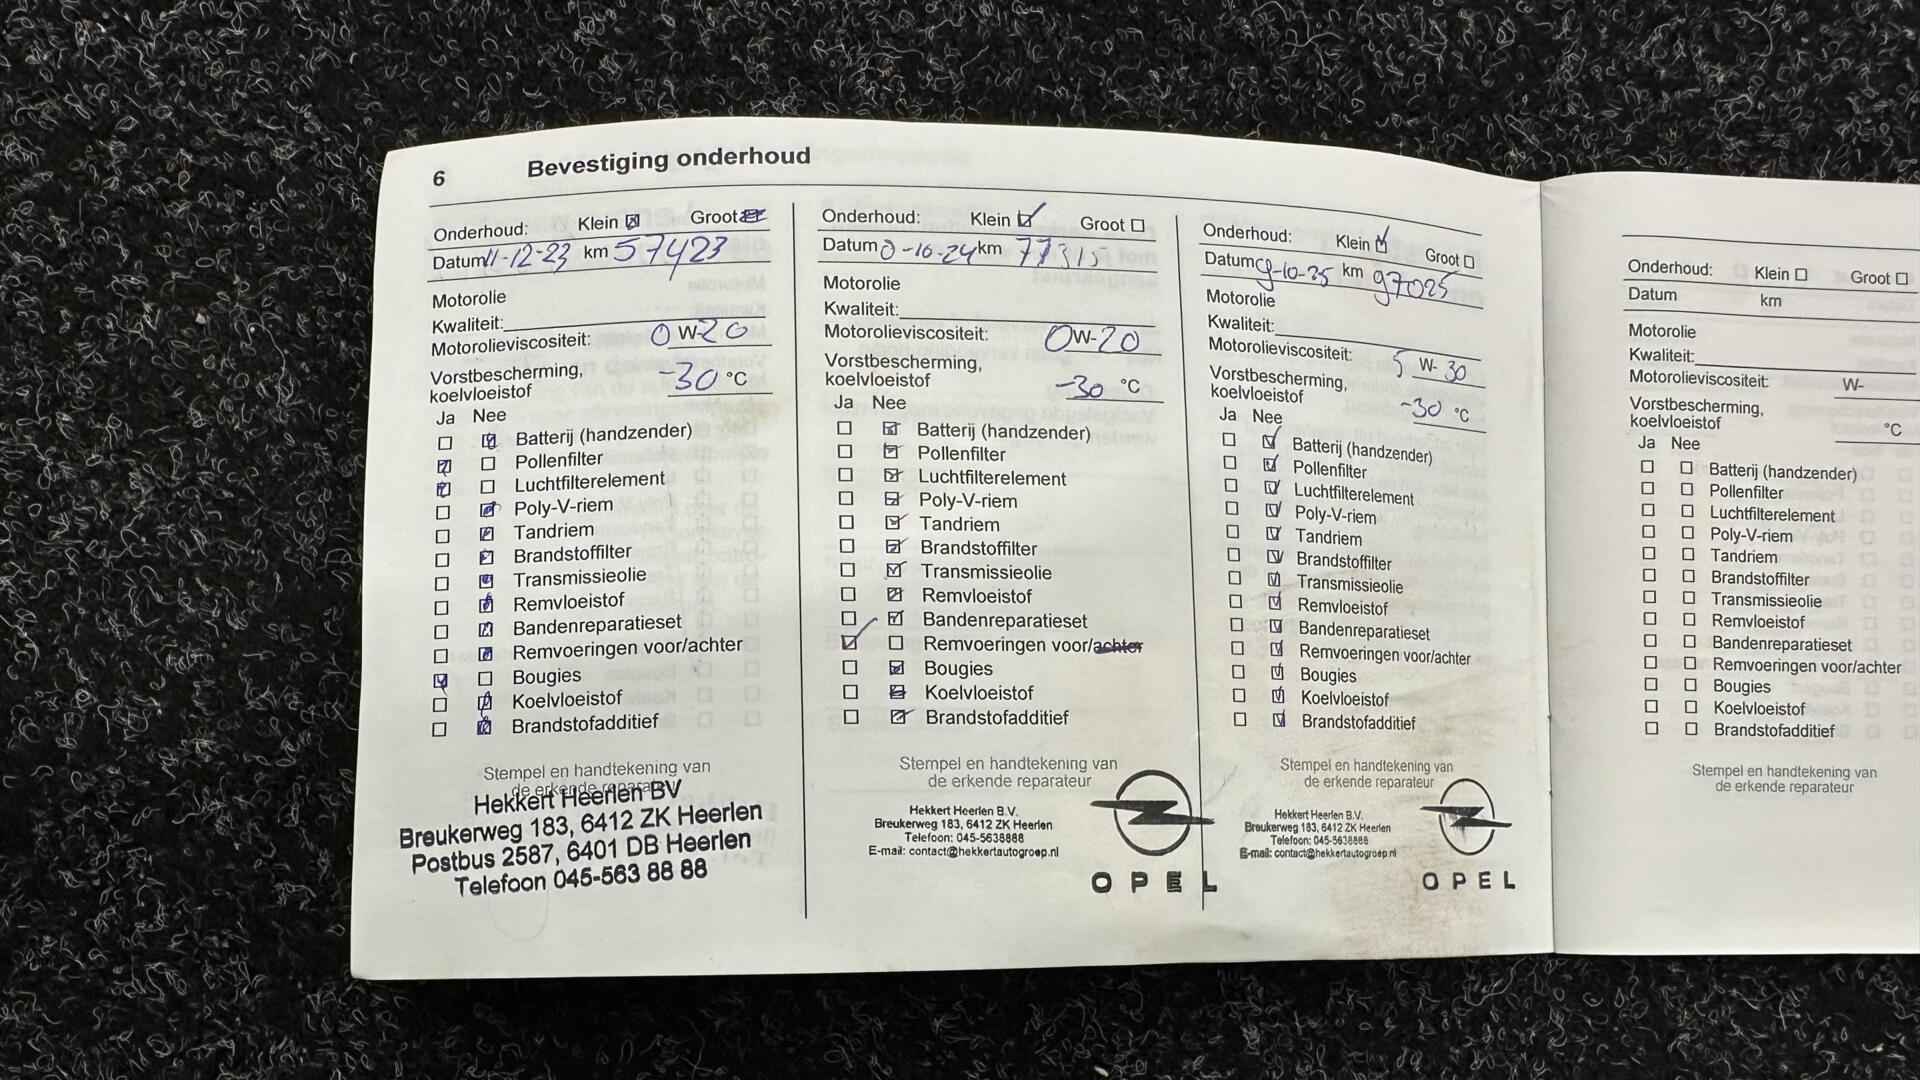 6 Bevestiging onderhoud
Onderhoud: Klein Groot
Datum 11-12-23 km 57423
Motorolie
Kwaliteit:
Motorolieviscositeit: 0 W-20
Vorstbescherming,
koelvloeistof -30 °C
Ja Nee
Batterij (handzender)
Pollenfilter
Luchtfilterelement
Poly-V-riem
Tandriem
Brandstoffilter
Transmissieolie
Remvloeistof
Bandenreparatieset
Remvoeringen voor/achter
Bougies
Koelvloeistof
Brandstofadditief
Stempel en handtekening van
de erkende reparateur
Hekkert Heerlen BV
Breukerweg 183, 6412 ZK Heerlen
Postbus 2587, 6401 DB Heerlen
Telefoon 045-563 88 88
Onderhoud: Klein Groot
Datum 0-10-24 km
Motorolie
Kwaliteit:
Motorolieviscositeit: 0W-20
Vorstbescherming,
koelvloeistof -30 °C
Ja Nee
Batterij (handzender)
Pollenfilter
Luchtfilterelement
Poly-V-riem
Tandriem
Brandstoffilter
Transmissieolie
Remvloeistof
Bandenreparatieset
Remvoeringen voor/achter
Bougies
Koelvloeistof
Brandstofadditief
Stempel en handtekening van
de erkende reparateur
Hekkert Heerlen B.V.
Breukerweg 183, 6412 ZK Heerlen
Telefoon: 045-5638888
E-mail: contact@hekkertautogroep.nl
OPEL
Onderhoud: Klein Groot
Datum 9-10-25 km 97025
Motorolie
Kwaliteit:
Motorolieviscositeit: 5 W-30
Vorstbescherming,
koelvloeistof -30 °C
Ja Nee
Batterij (handzender)
Pollenfilter
Luchtfilterelement
Poly-V-riem
Tandriem
Brandstoffilter
Transmissieolie
Remvloeistof
Bandenreparatieset
Remvoeringen voor/achter
Bougies
Koelvloeistof
Brandstofadditief
Stempel en handtekening van
de erkende reparateur
Hekkert Heerlen B.V.
Breukerweg 183, 6412 ZK Heerlen
Telefoon: 045-5638888
E-mail: contact@hekkertautogroep.nl
OPEL
Onderhoud: Klein Groot
Datum km
Motorolie
Kwaliteit:
Motorolieviscositeit: W-
Vorstbescherming,
koelvloeistof °C
Ja Nee
Batterij (handzender)
Pollenfilter
Luchtfilterelement
Poly-V-riem
Tandriem
Brandstoffilter
Transmissieolie
Remvloeistof
Bandenreparatieset
Remvoeringen voor/achter
Bougies
Koelvloeistof
Brandstofadditief
Stempel en handtekening van
de erkende reparateur